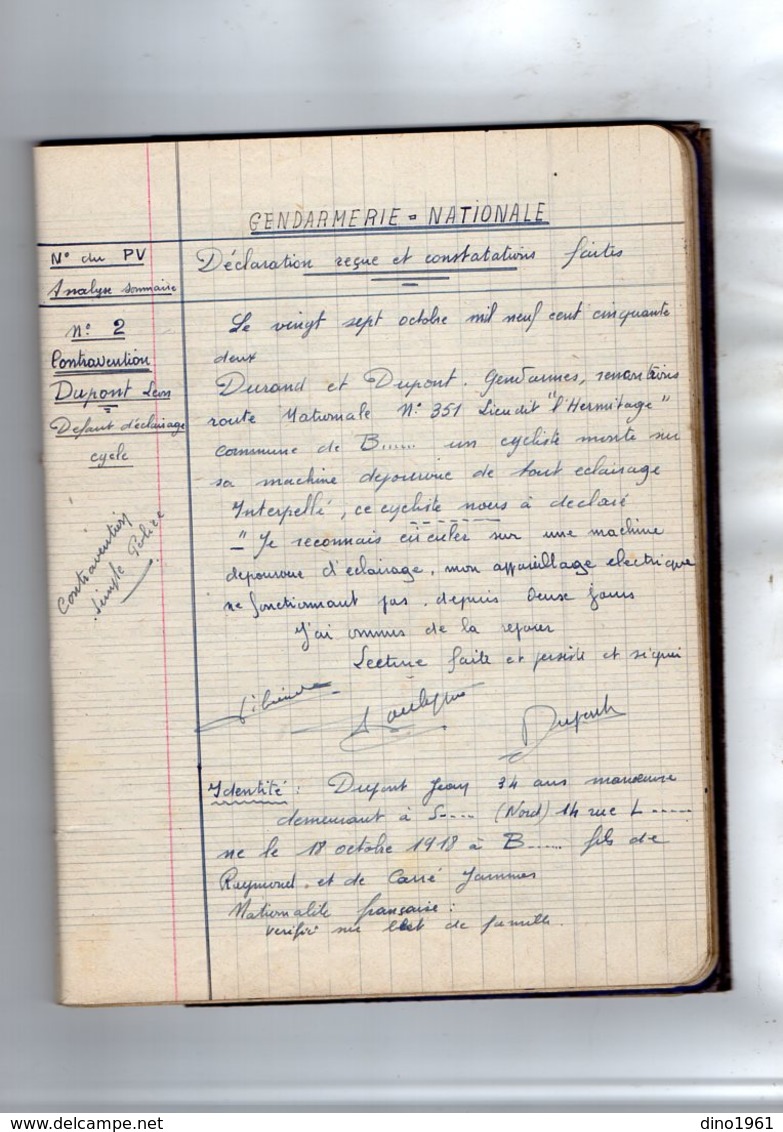 GENDARMERIE = NATIONALE
N° du PV
Analyse sommaire
Déclaration reçue et constatations faites
N° 2
Contravention
Dupont Leon
Defaut d'éclairage
cycle
Contravention
simple Police
Le vingt sept octobre mil neuf cent cinquante
deux
Durand et Dupont. Gendarmes, rencontrons
route Nationale N° 351 Lieu dit "l'Hermitage"
commune de B...... un cycliste monté sur
sa machine depourvue de tout eclairage
Interpellé, ce cycliste nous à declaré
" Je reconnais circuler sur une machine
depourvue d'eclairage, mon appareillage electrique
ne fonctionnant pas. depuis deux jours
J'ai ommis de la reparer
Lecture faite et persiste et signe
Dupont
Identité : Dupont Jean 34 ans manœuvre
demeurant à S..... (Nord) 14 rue L.....
né le 18 octobre 1918 à B..... fils de
Raymond. et de Carré
Nationalité française :
Verifié sur livret de famille.
dino1961